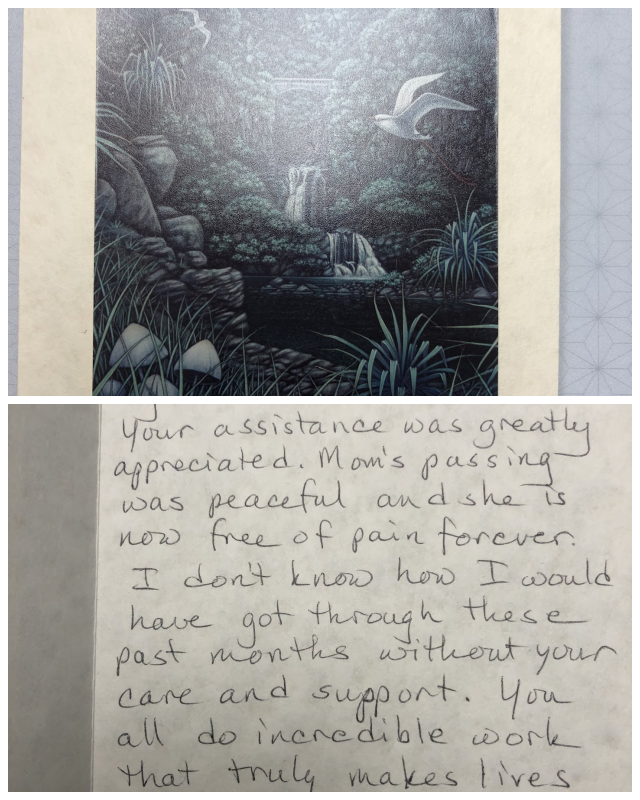 Your assistance was greatly
appreciated. Mom's passing
was peaceful and she is
now free of pain forever.
I don't know how I would
have got through these
past months without your
care and support. You
all do incredible work
that truly makes lives